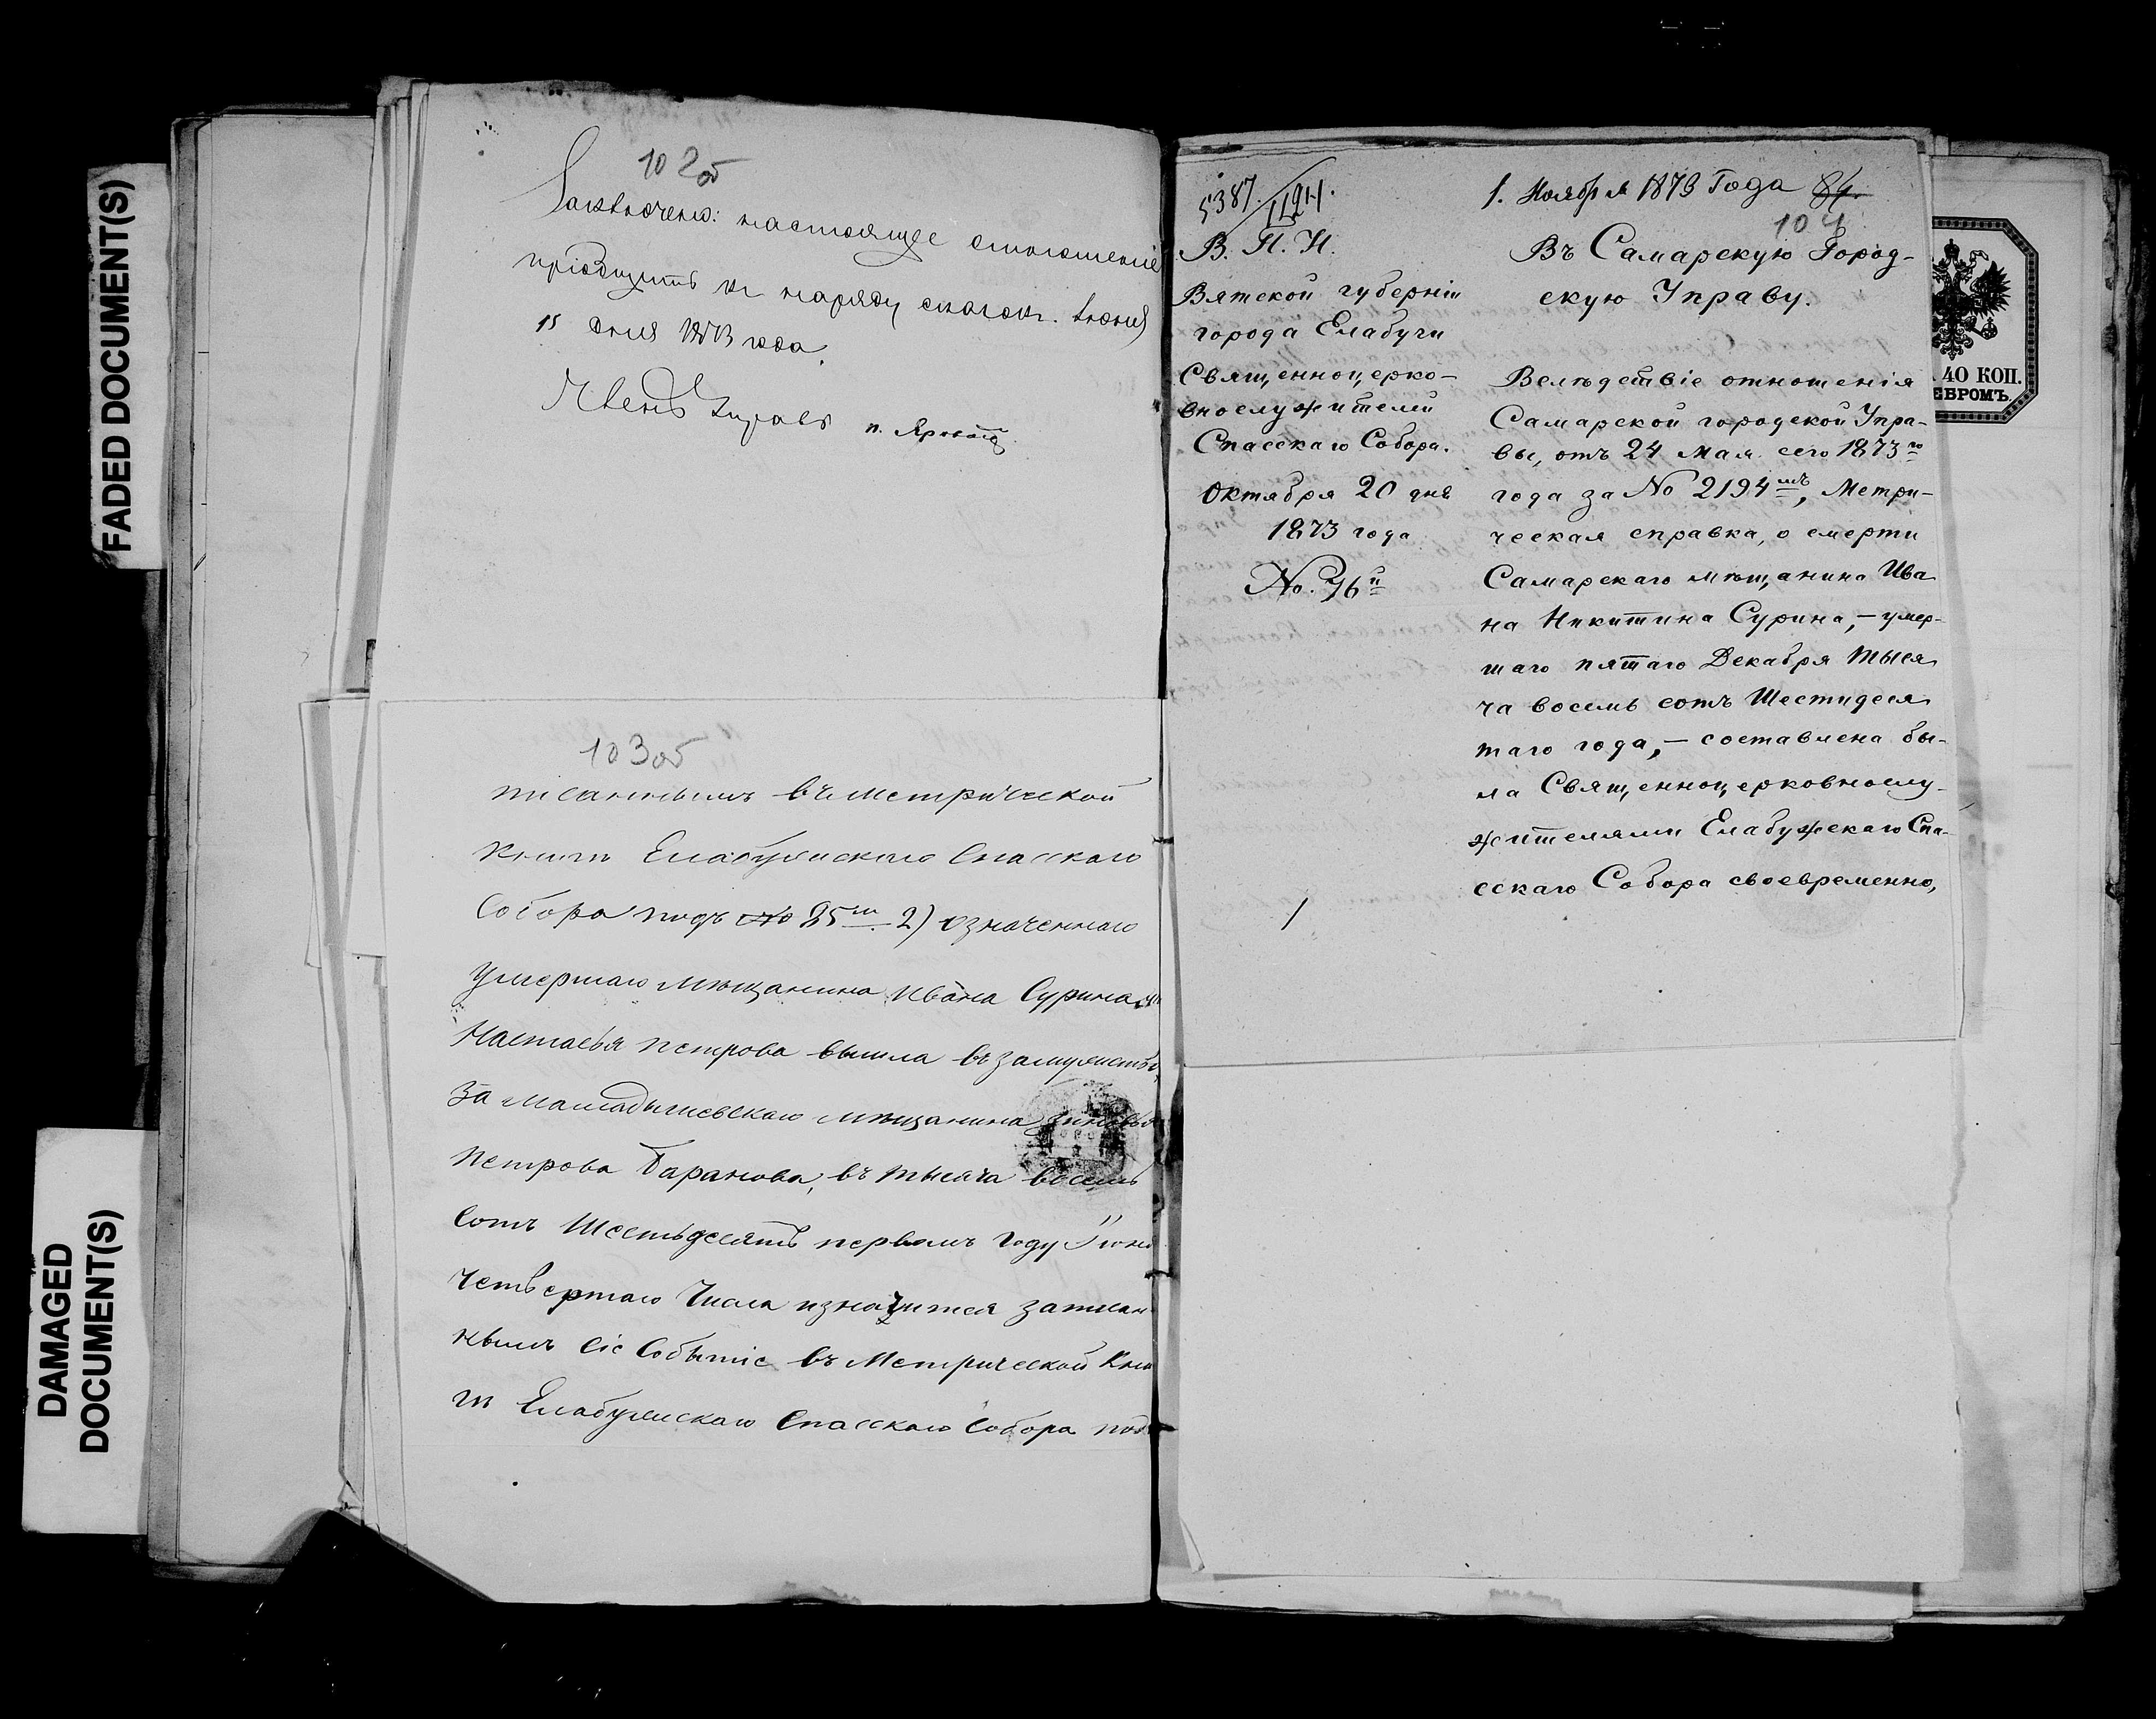 FADED DOCUMENT(S)
DAMAGED
DOCUMENT(S)
102об
Заключено: настоящее отношение
пріобщить къ наряду сказок. Іюня
15 дня 1873 года.
Членъ Управы
103об
писаннымъ въ Метрической
книгѣ Елабужскаго Спасскаго
Собора подъ № 85мъ 2) означеннаго
умершаго мѣщанина Ивана Сурина
Настасья Петрова вышла въ замужство,
за Мамадышевскаго мѣщанина
Петрова Баранова, въ тысяча восемь
сотъ Шестьдесятъ первомъ году Іюня
Четвертаго Числа и значится записан
нымъ Сіе Событіе въ Метрической Кни
гѣ Елабужскаго Спасскаго Собора подъ
5387.
В. П. И.
Вятской губерніи
города Елабуги
Священноцерко-
внослужителей
Спасскаго Собора.
Октября 20 дня
1873 года
No. 76й
1. Ноября 1873 Года 84.
104
Въ Самарскую Город-
скую Управу.
Вслѣдствіе отношенія
Самарской городской Упра-
вы, отъ 24 Мая сего 1873го
года за No 2194мъ, Метри-
ческая справка, о смерти
Самарскаго мѣщанина Ива
на Никитина Сурина, – умер-
шаго пятаго Декабря тыся
ча восемь сотъ Шестидеся
таго года, – составлена бы-
ла Священноцерковнослу-
жителями Елабужскаго Спа-
сскаго Собора своевременно,
40 КОП.
ЕБРОМЪ.